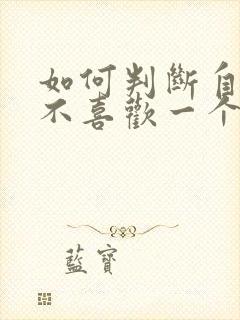 如何判斷自
不喜歡一个
藍寶